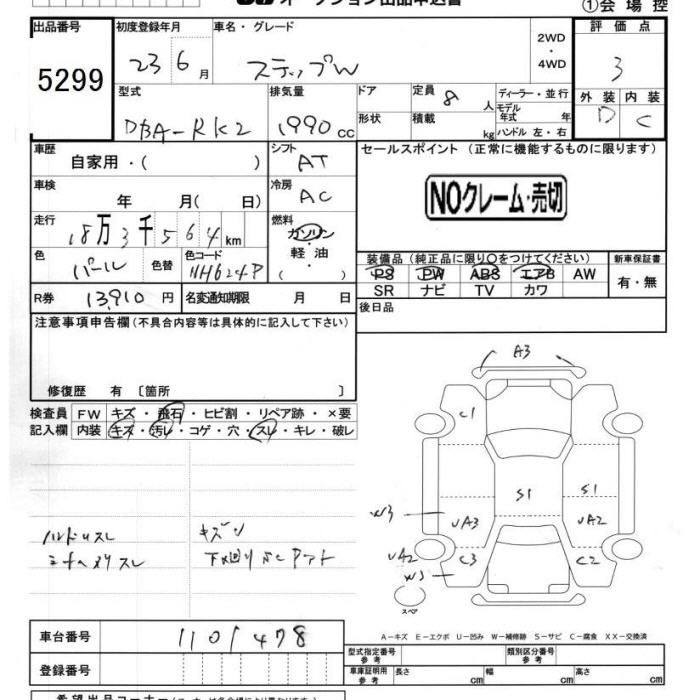 オークション出品申込書
①会場控
出品番号 5299
初度登録年月 23 6月
車名・グレード ステップW
2WD・4WD
評価点 3
外装 D 内装 C
型式 DBA-RK2
排気量 1990 cc
ドア
形状
定員 8人
積載 kg
ディーラー・並行
モデル年式 年
ハンドル 左・右
車歴 自家用・( )
シフト AT
セールスポイント (正常に機能するものに限ります)
NOクレーム・売切
車検 年 月( 日)
冷房 AC
走行 18万3千564km
燃料 ガソリン・軽油・( )
色 パール
色替
色コード NH624P
装備品 (純正品に限り○をつけてください)
新車保証書
PS PW ABS エアB AW
SR ナビ TV カワ
有・無
R券 13,910円
名変通知期限 月 日
後日品
注意事項申告欄 (不具合内容等は具体的に記入して下さい)
修復歴 有 〔箇所 〕
検査員記入欄
FW キズ・飛石・ヒビ割・リペア跡・×要
内装 キズ・汚レ・コゲ・穴・スレ・キレ・破レ
ハンドルスレ
キズ
下廻り
A3
C1
S1
S1
W3
UA3
UA2
UA2
C3
C2
W3
スペア
A-キズ E-エクボ U-凹み W-補修跡 S-サビ C-腐食 XX-交換済
車台番号 1101478
登録番号
型式指定番号 参考
類別区分番号 参考
車庫証明用 参考 長さ cm 幅 cm 高さ cm
希望出品コーナー